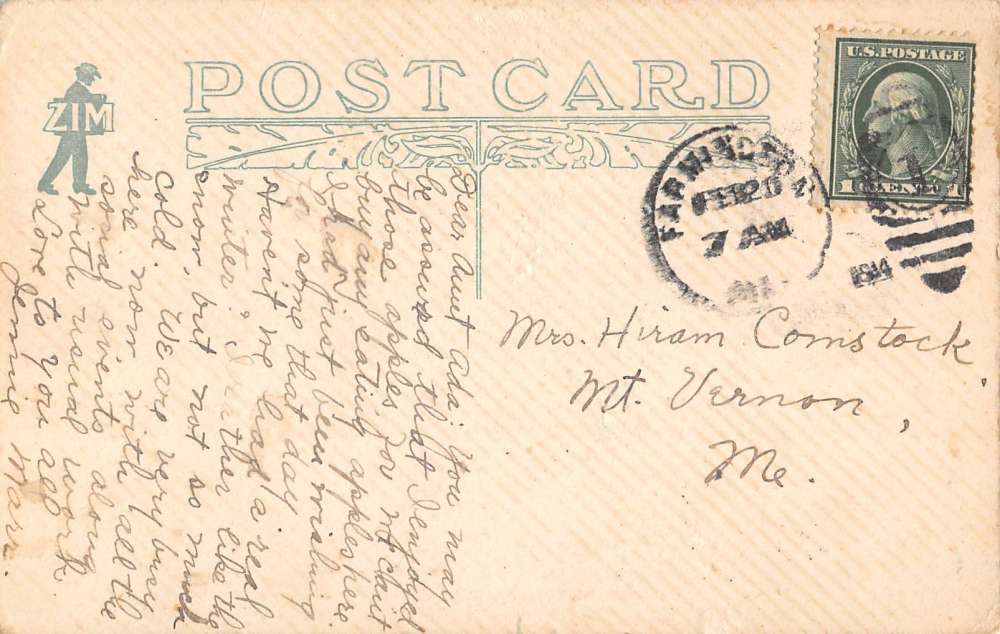 ZIM
POST CARD
U.S. POSTAGE
1 CENT 1
FARMINGTON
FEB 26
7 AM
1914
Mrs. Hiram Comstock,
Mt. Vernon,
Me.
Dear Aunt Ada: You may
be assured that I enjoyed
those apples for we can't
buy any eating apples here.
I had just been wishing
for some that day.
Havent we had a real
winter?
weather like the
snow, but not so much
cold. We are very busy
here now with all the
social events along
with usual work.
Love to you all
Jennie